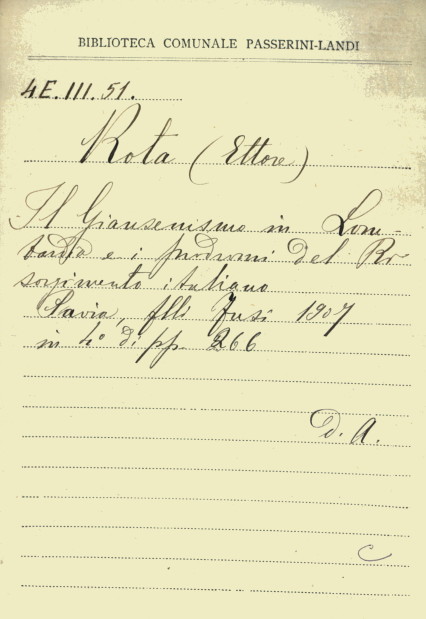 BIBLIOTECA COMUNALE PASSERINI-LANDI
4E.III.51.
Rota (Ettore)
Il Giansenismo in Lom-
bardia e i prodromi del Ri-
sorgimento italiano
Pavia, flli Fusi 1907
in 4° di pp. 266
D. A.
C